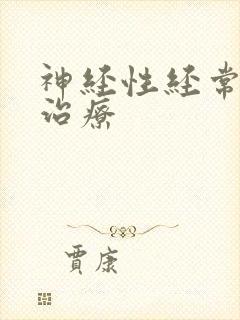 神経性経常
治療
賈康